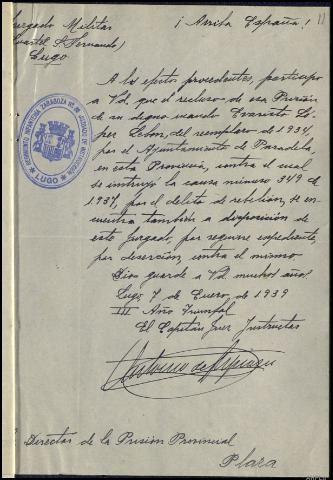 Juzgado Militar
(Cuartel S. Fernando)
Lugo
¡Arriba España!
11
REGIMIENTO INFANTERIA ZARAGOZA Nº
JUZGADO DE INSTRUCCIÓN
LUGO
A los efectos procedentes, participo
a Vd. que el recluso de esa Prisión
de su digno mando Evaristo Ló-
pez León, del reemplazo de 1934,
por el Ayuntamiento de Paradela,
en esta Provincia, contra el cual
se instruyó la causa número 349 de
1937, por el delito de rebelión, se en-
cuentra también a disposición de
este Juzgado por seguirse expediente,
por deserción, contra el mismo
Dios guarde a Vd. muchos años
Lugo 7 de Enero de 1939
III Año Triunfal
El Capitán Juez Instructor
Director de la Prisión Provincial
Plaza